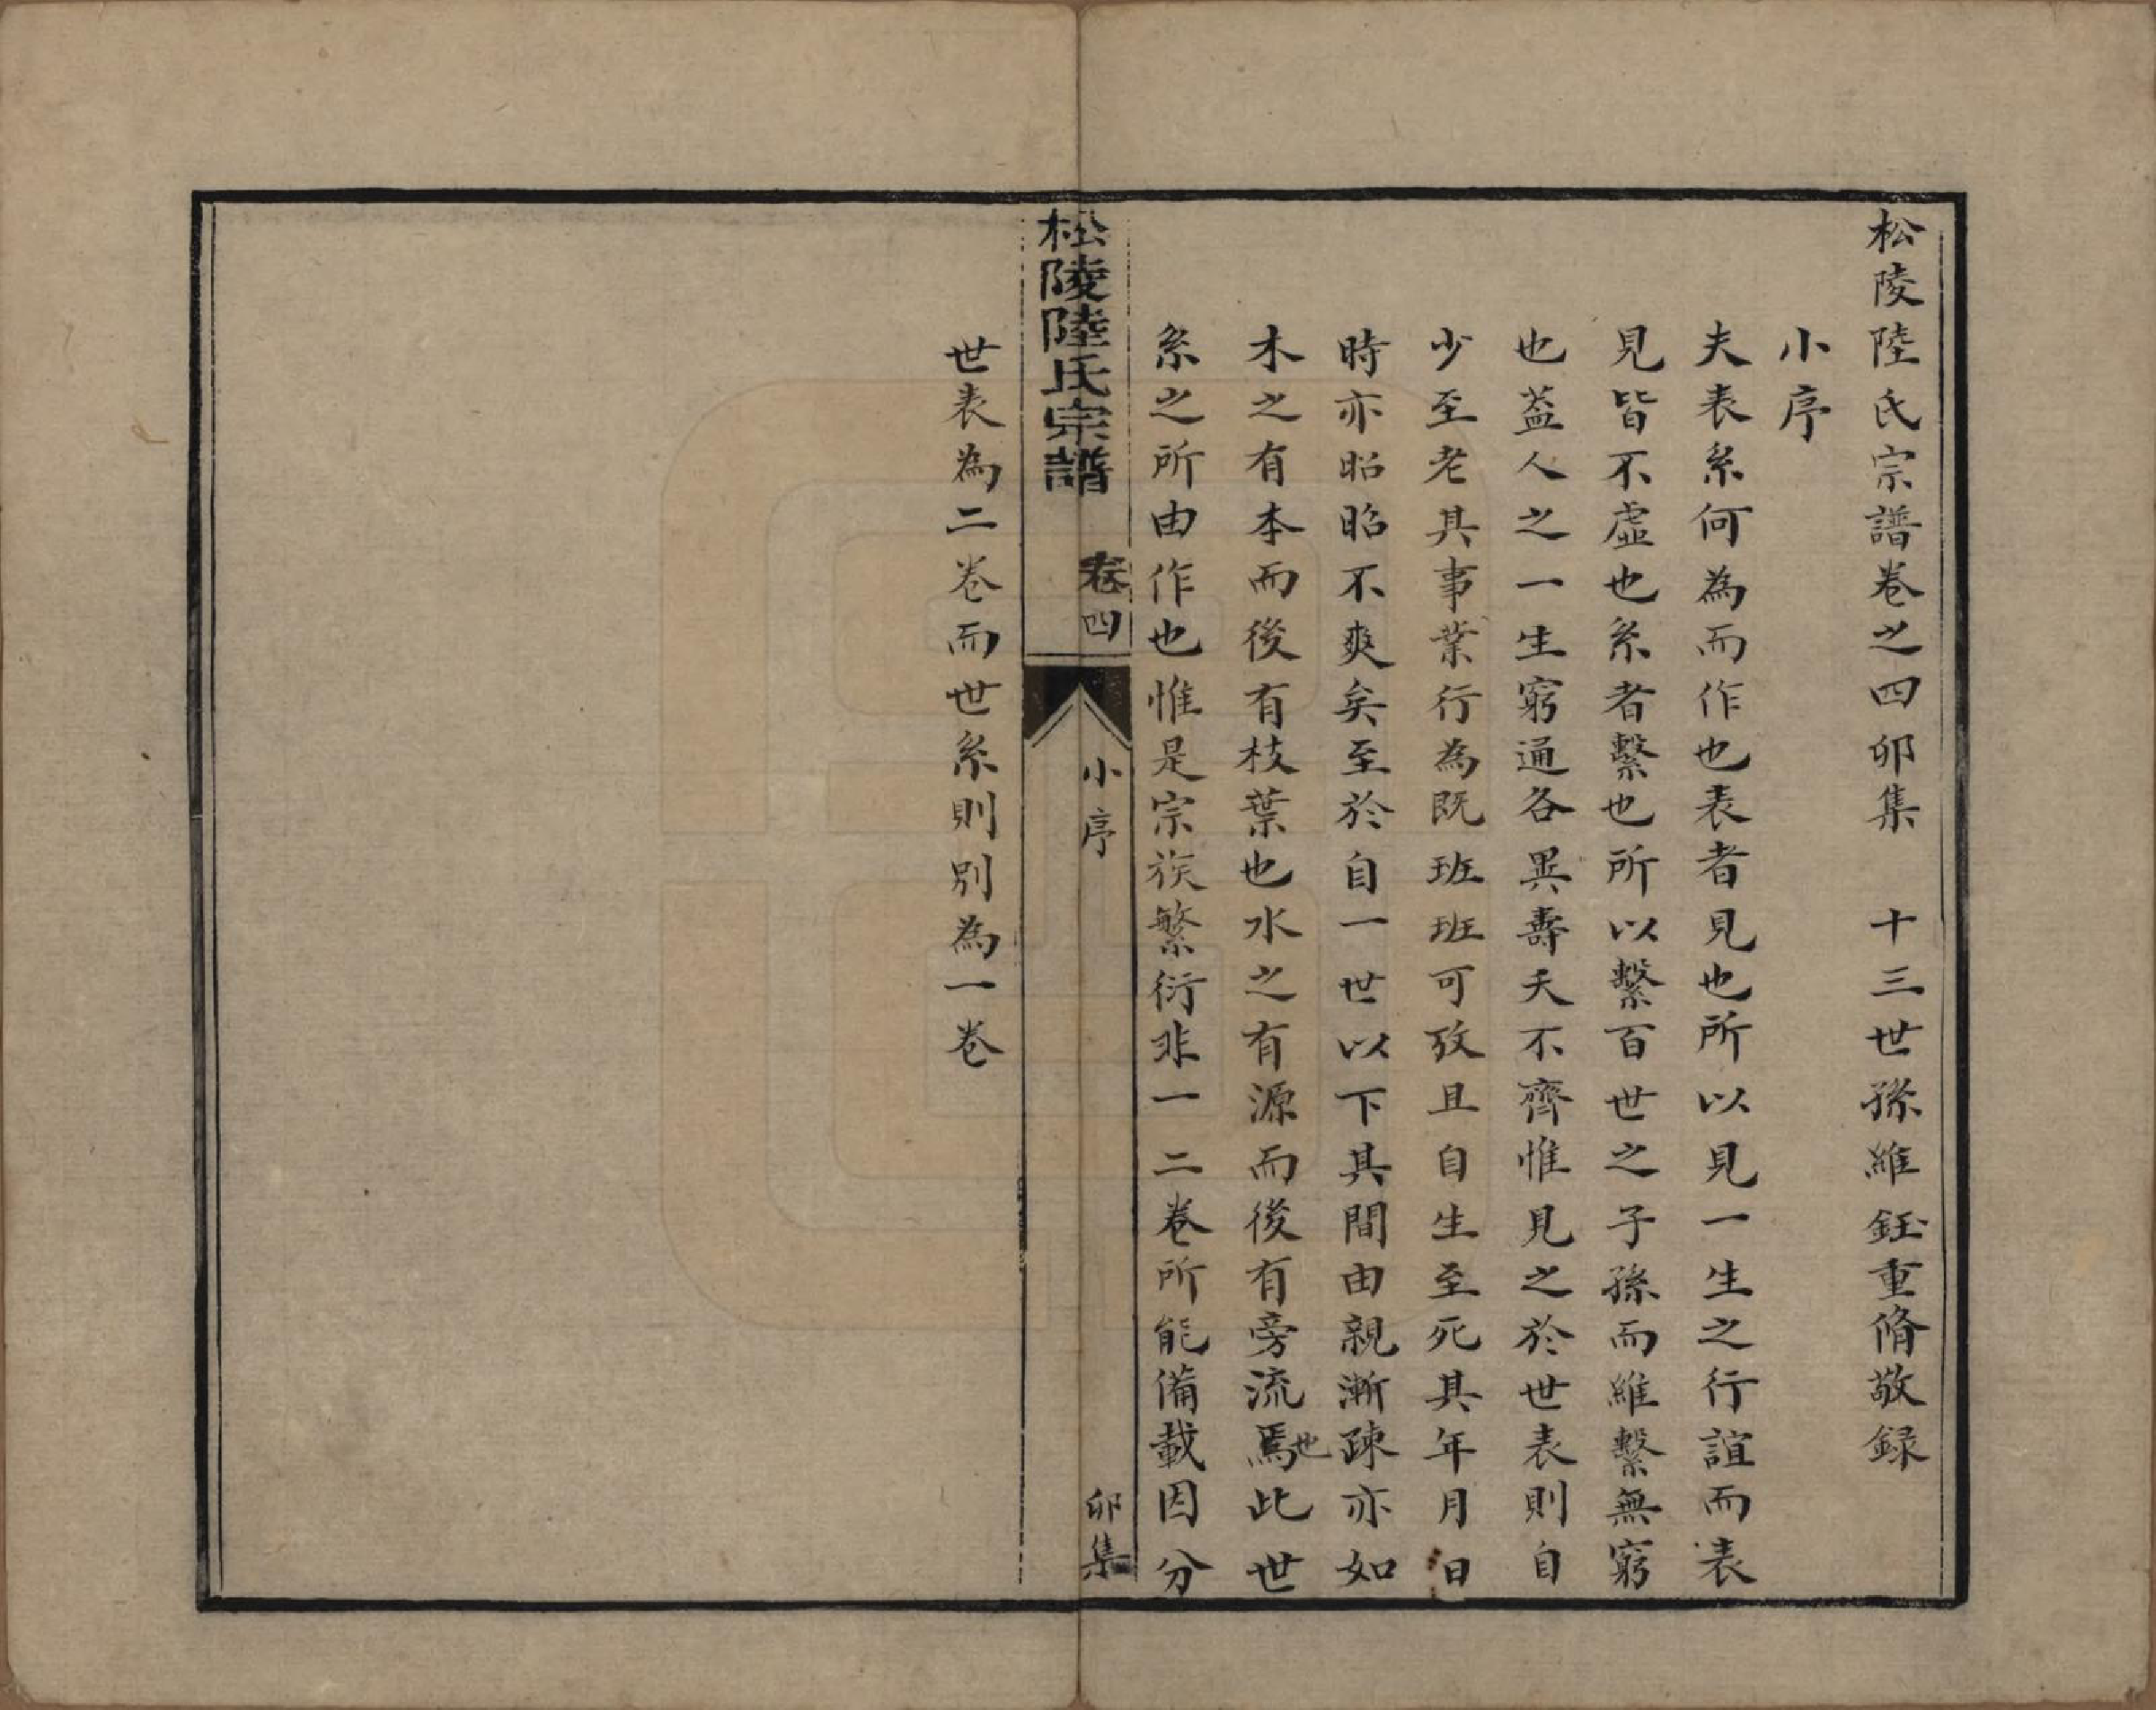 松陵陸氏宗譜卷之四卯集　十三世孫維鈺重脩敬録
小序
夫表系何為而作也表者見也所以見一生之行誼而表
見皆不虛也系者繫也所以繫百世之子孫而維繫無窮
也葢人之一生窮通各異壽夭不齊惟見之於世表則自
少至老其事業行為既班班可攷且自生至死其年月日
時亦昭昭不爽矣至於自一世以下其間由親漸疎亦如
木之有本而後有枝葉也水之有源而後有旁流焉也此世
系之所由作也惟是宗族繁衍非一二卷所能備載因分
松陵陸氏宗譜　卷四　小序　卯集
世表為二卷而世系則別為一卷